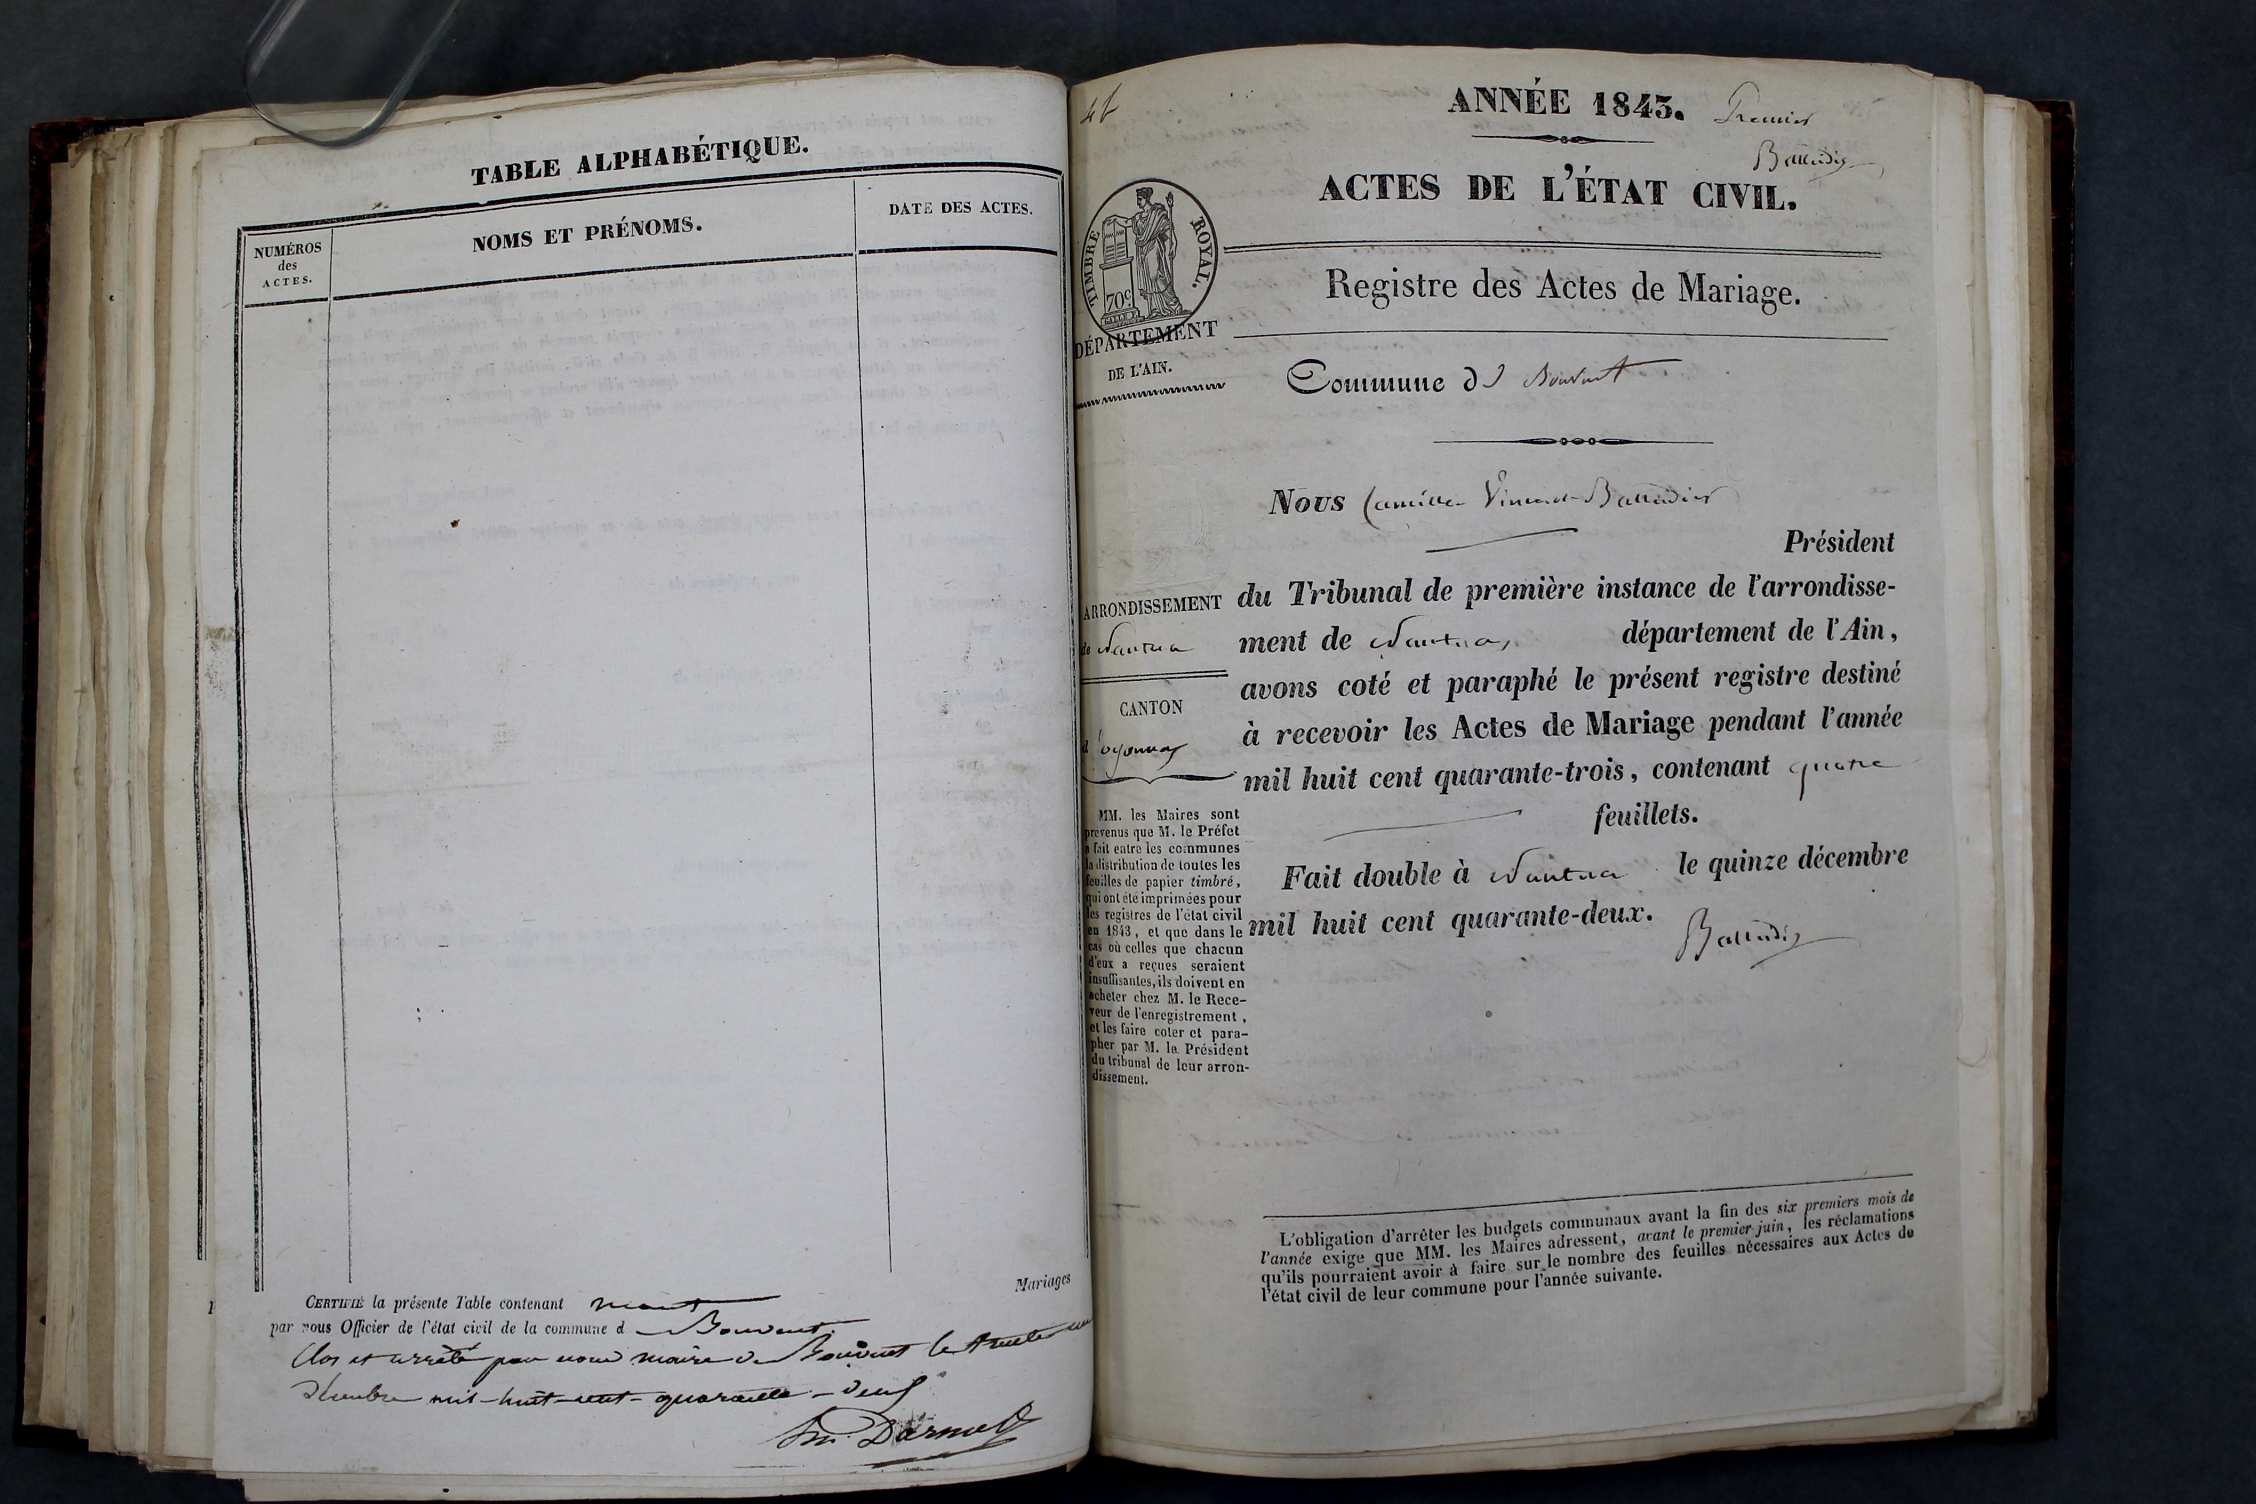 TABLE ALPHABÉTIQUE.
NUMÉROS
des
ACTES.
NOMS ET PRÉNOMS.
DATE DES ACTES.
Mariages
CERTIFIÉ la présente Table contenant neant
par nous Officier de l'état civil de la commune d Bouvent
Clos et arrêté par nous maire de Bouvent le trente un
décembre mil-huit-cent-quarante-deux
ANNÉE 1843. Premier
Battudier
ACTES DE L'ÉTAT CIVIL.
TIMBRE ROYAL.
70c
DÉPARTEMENT
DE L'AIN.
Registre des Actes de Mariage.
Commune de Bouvent
Nous Camille Vincent
Président
ARRONDISSEMENT
de Nantua
CANTON
d'oyonnax
du Tribunal de première instance de l'arrondisse-
ment de Nantua, département de l'Ain,
avons coté et paraphé le présent registre destiné
à recevoir les Actes de Mariage pendant l'année
mil huit cent quarante-trois, contenant quatre
feuillets.
Fait double à Nantua le quinze décembre
mil huit cent quarante-deux.
MM. les Maires sont
prévenus que M. le Préfet
a fait entre les communes
la distribution de toutes les
feuilles de papier timbré,
qui ont été imprimées pour
les registres de l'état civil
en 1843, et que dans le
cas où celles que chacun
d'eux a reçues seraient
insuffisantes, ils doivent en
acheter chez M. le Rece-
veur de l'enregistrement,
et les faire coter et para-
pher par M. le Président
du tribunal de leur arron-
dissement.
L'obligation d'arrêter les budgets communaux avant la fin des six premiers mois de
l'année exige que MM. les Maires adressent, avant le premier juin, les réclamations
qu'ils pourraient avoir à faire sur le nombre des feuilles nécessaires aux Actes de
l'état civil de leur commune pour l'année suivante.